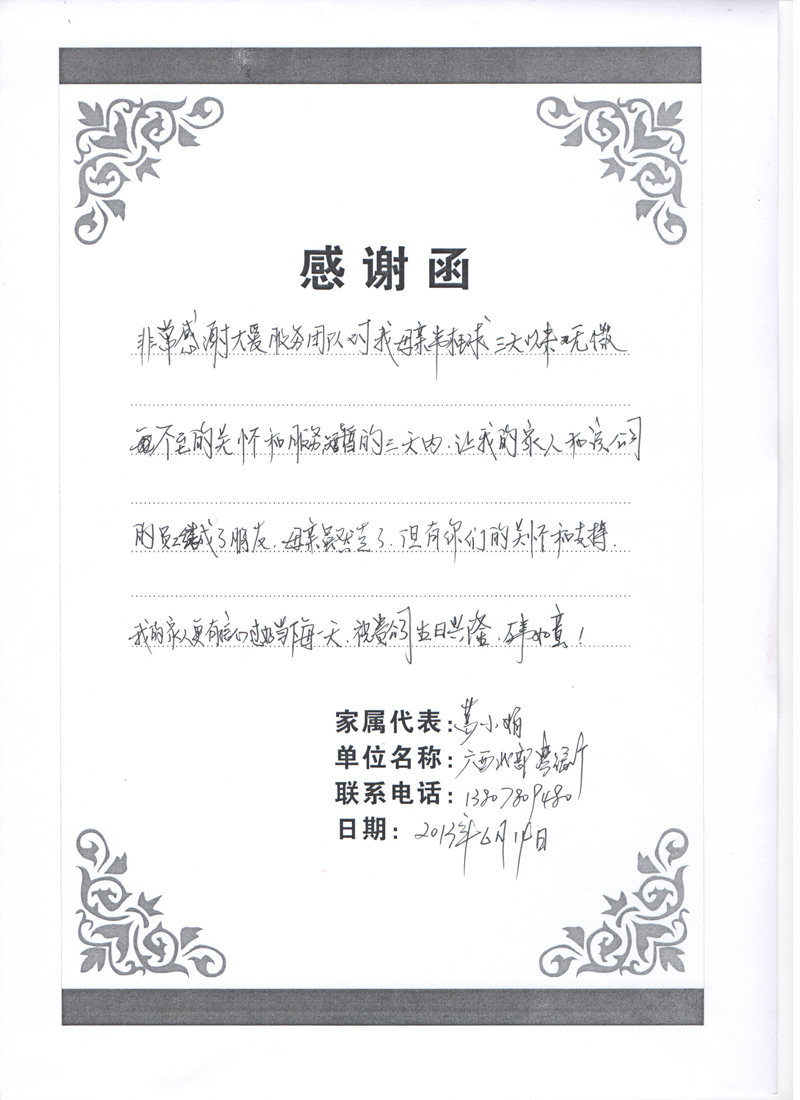 感谢函
非常感谢大爱服务团队对我母亲韦桂球三天以来无微
不至的关怀和服务 短暂的三天内,让我的家人和该公司
的员工结成了朋友,母亲虽然走了,但有你们的关怀和支持.
我的家人更有信心过好当下每一天,祝贵公司生日兴隆,万事如意!
家属代表:小娟
单位名称:广西北部湾银行
联系电话:13807809480
日期:2013年6月14日